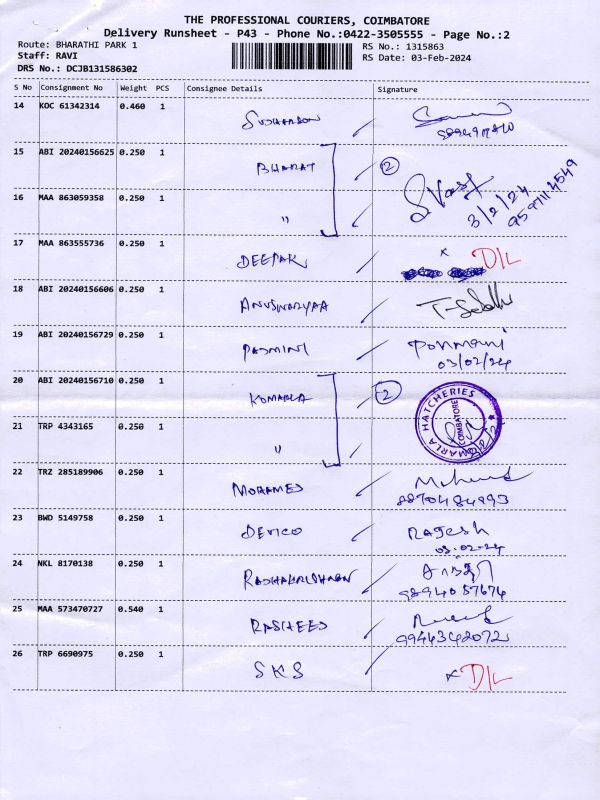 THE PROFESSIONAL COURIERS, COIMBATORE
Delivery Runsheet - P43 - Phone No.:0422-3505555 - Page No.:2
Route: BHARATHI PARK 1
RS No.: 1315863
Staff: RAVI
RS Date: 03-Feb-2024
DRS No.: DCJB131586302
S No Consignment No Weight PCS Consignee Details Signature
14 KOC 61342314 0.460 1 SUDHARSON
15 ABI 20240156625 0.250 1 BHARAT 2
3/2/24
16 MAA 863059358 0.250 1 "
17 MAA 863555736 0.250 1 DEEPAK x D/L
18 ABI 20240156606 0.250 1
19 ABI 20240156729 0.250 1 PADMINI Ponmani
03/02/24
20 ABI 20240156710 0.250 1 KOMARLA 2
KOMARLA HATCHERIES
COIMBATORE
21 TRP 4343165 0.250 1 "
22 TRZ 285189906 0.250 1 MOHAMED
8870484993
23 BWD 5149758 0.250 1 DEVICO Ragesh
03.02.24
24 NKL 8170138 0.250 1 RADHAKRISHNAN
9894057674
25 MAA 573470727 0.540 1 RASHEED
9944342072
26 TRP 6690975 0.250 1 SKS x D/L